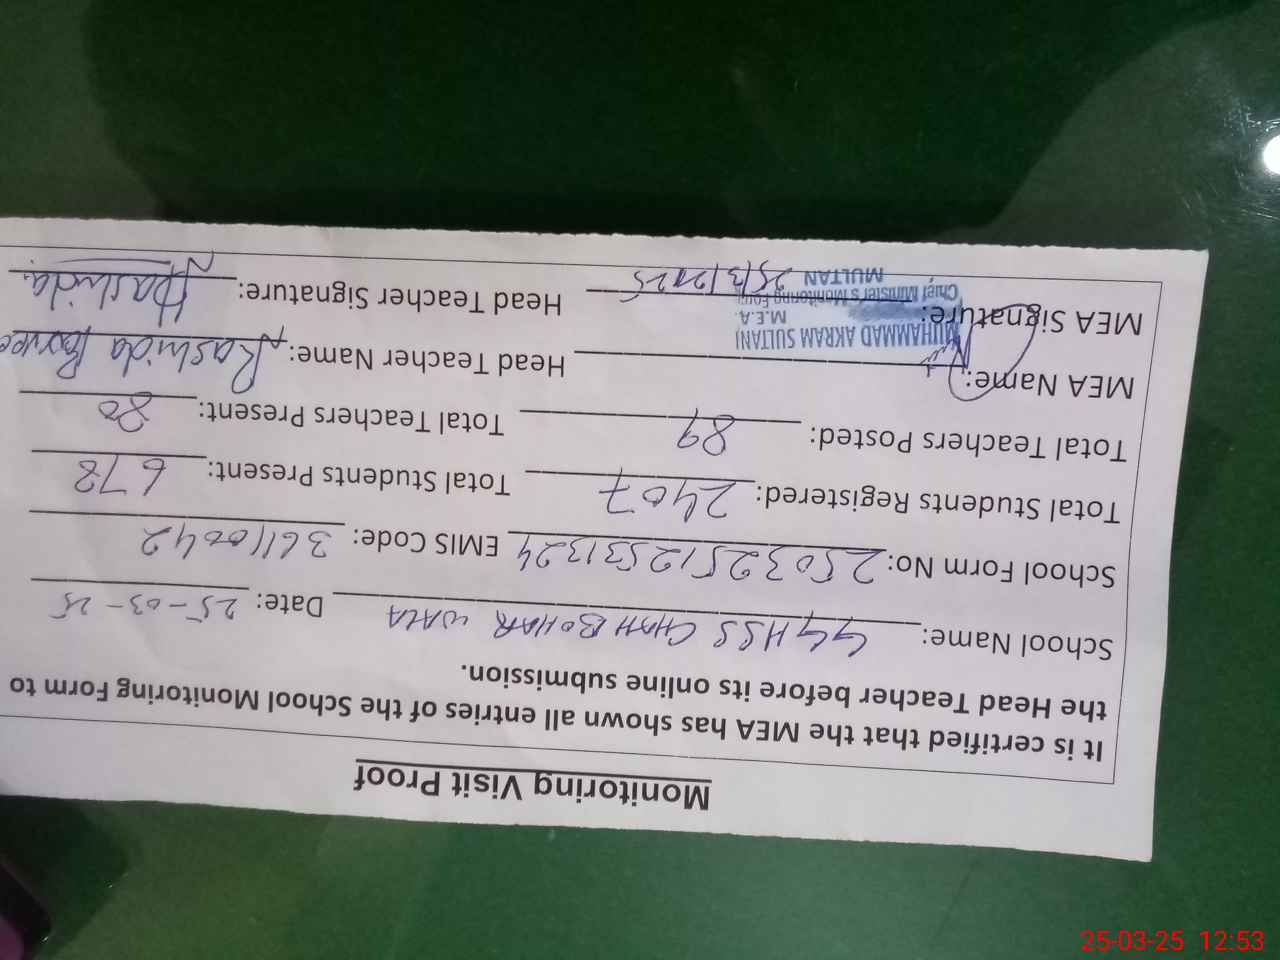 Monitoring Visit Proof
It is certified that the MEA has shown all entries of the School Monitoring Form to
the Head Teacher before its online submission.
School Name: GGHSS CHAH BOHAR WALA Date: 25-03-25
School Form No: 250325125331324 EMIS Code: 36110042
Total Students Registered: 2407 Total Students Present: 678
Total Teachers Posted: 89 Total Teachers Present: 80
MEA Name: Head Teacher Name: Rashida
MUHAMMAD AKRAM SULTANI
M.E.A.
MEA Signature: Head Teacher Signature: Rashida.
Chief Minister's Monitoring Force
MULTAN 25/3/2025
25-03-25 12:53